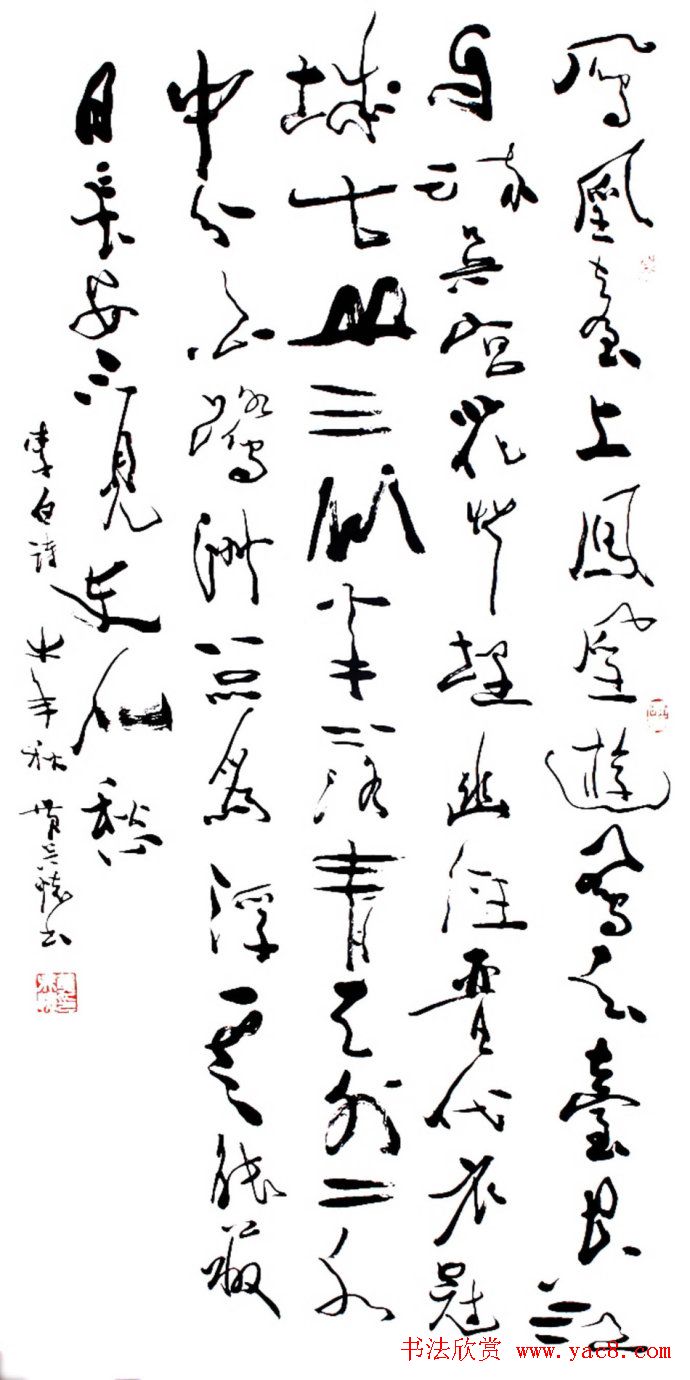 鳳凰臺上鳳凰遊鳳去臺空江
自流吳宮花草埋幽徑晉代衣冠
城古丘三山半落青天外二水
中分白鷺洲總為浮雲能蔽
日長安不見使人愁
李白詩 年秋 書
书法欣赏 www.yac8.com